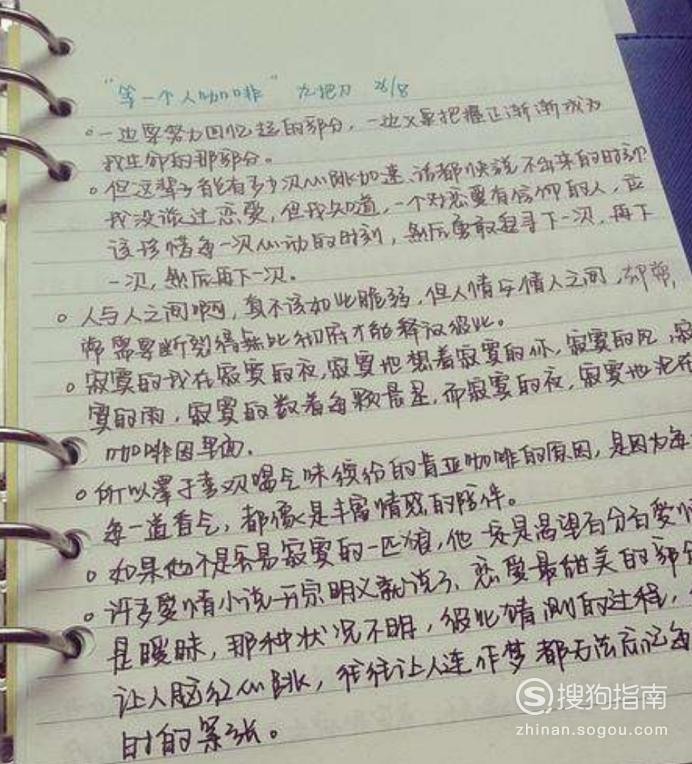 “等一个人咖啡” 九把刀 26/8
一边要努力回忆起的部分,一边又要把握正渐渐成为
我生命的那部分。
但这辈子能有多少次心跳加速、话都快说不出来的时刻?
我没谈过恋爱,但我知道,一个对恋爱有信仰的人,应
该珍惜每一次心动的时刻,然后勇敢追寻下一次,再下
一次,然后再下一次。
人与人之间啊,真不该如此脆弱,但人情与情人之间,却常,
常需要断裂得如此彻底才能释放彼此。
寂寞的我在寂寞的夜,寂寞地想着寂寞的你,寂寞的风,寂
寞的雨,寂寞的数着每颗晨星,而寂寞的夜,寂寞地泡在
咖啡因里面。
所以泽于喜欢喝气味缤纷的肯亚咖啡的原因,是因为每
每一道香气,都像是丰富情感的陪伴。
如果他不是容易寂寞的一匹狼,他一定是渴望百分百爱情
许多爱情小说一开宗明义就说了,恋爱最甜美的部分
是暧昧,那种状况不明,彼此猜测的过程,
让人脑红心跳,往往让人连作梦都无法忘记每
时的紧张。
搜狗指南
zhinan.sogou.com